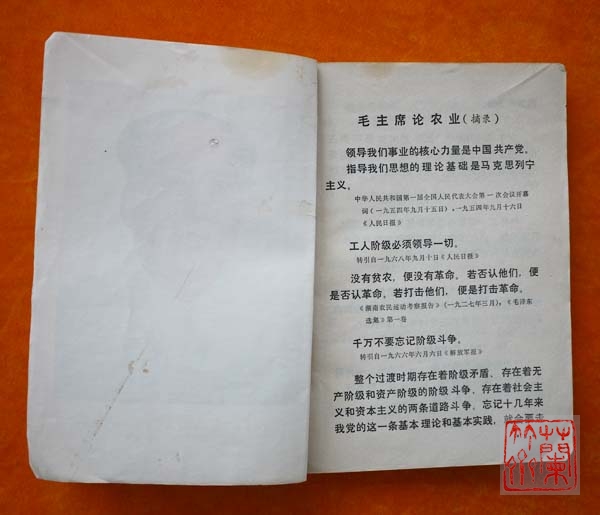 毛主席论农业(摘录)
领导我们事业的核心力量是中国共产党。
指导我们思想的理论基础是马克思列宁
主义。
中华人民共和国第一届全国人民代表大会第一次会议开幕
词(一九五四年九月十五日),一九五四年九月十六日
《人民日报》
工人阶级必须领导一切。
转引自一九六八年九月十日《人民日报》
没有贫农,便没有革命。若否认他们,便
是否认革命。若打击他们,便是打击革命。
《湖南农民运动考察报告》(一九二七年三月),《毛泽东
选集》第一卷
千万不要忘记阶级斗争。
转引自一九六六年六月六日《解放军报》
整个过渡时期存在着阶级矛盾、存在着无
产阶级和资产阶级的阶级斗争、存在着社会主
义和资本主义的两条道路斗争。忘记十几年来
我党的这一条基本理论和基本实践,就会要走